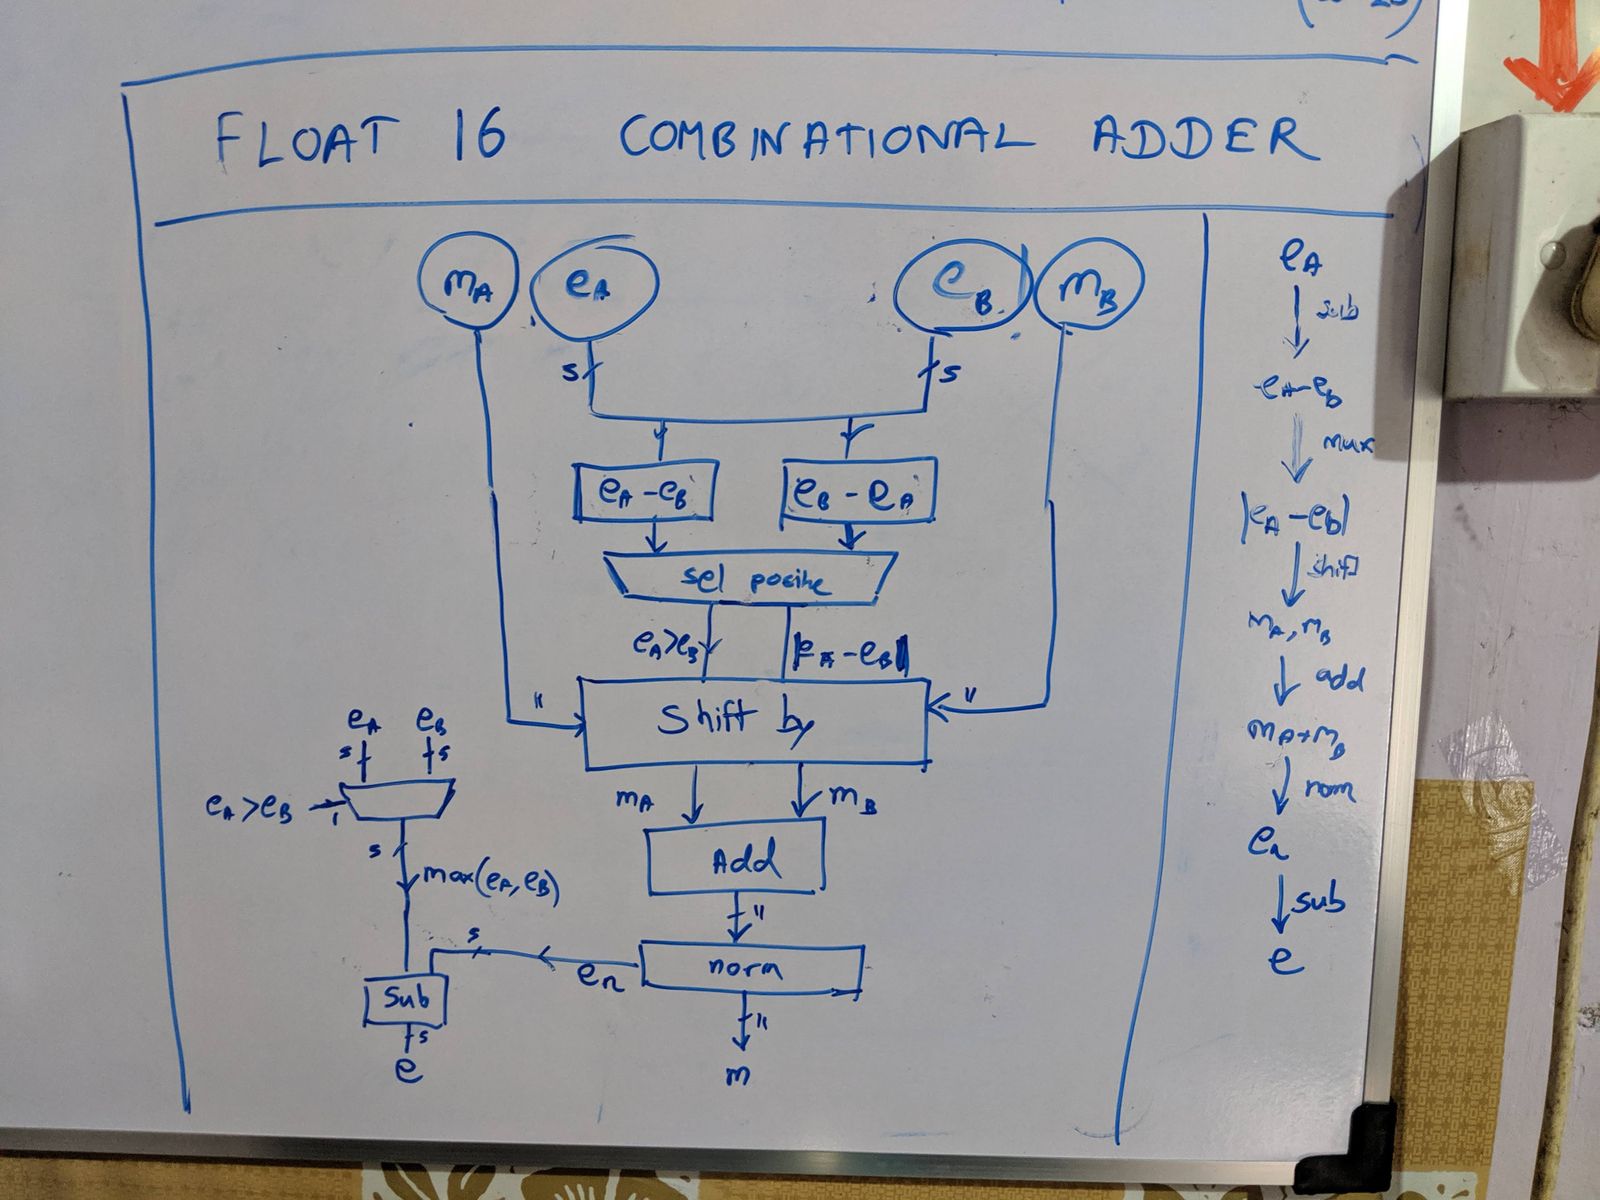 FLOAT 16 COMBINATIONAL ADDER
mA eA eB mB
5 5
eA - eB eB - eA
sel positive
eA>eB |eA - eB|
11 11
Shift by
mA mB
Add
11
norm
11
m
eA eB
5 5
eA>eB
1
5
max(eA, eB)
5
en
Sub
5
e
eA
sub
eA-eB
mux
|eA - eB|
shift
mA, mB
add
mA+mB
norm
en
sub
e